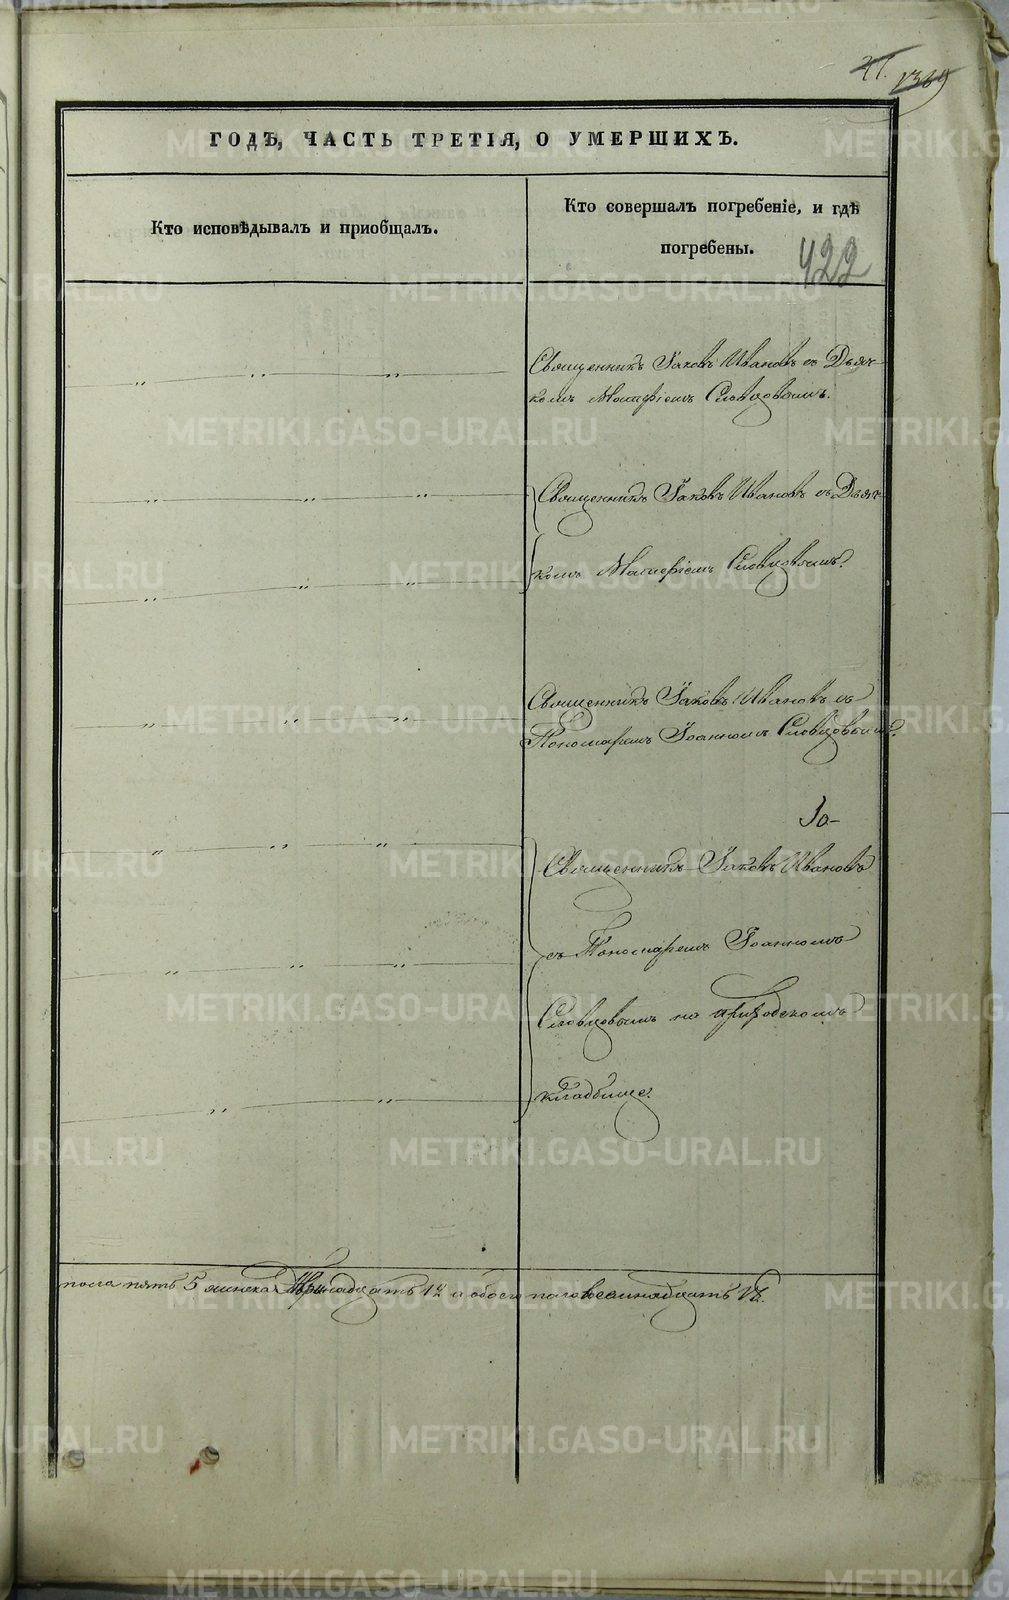 ГОДЪ, ЧАСТЬ ТРЕТІЯ, О УМЕРШИХЪ.
Кто исповѣдывалъ и приобщалъ.
Кто совершалъ погребеніе, и гдѣ
погребены.
422
Священникъ Іаковъ Ивановъ съ Дьяч-
комъ Матфіемъ Словцовымъ.
Священникъ Іаковъ Ивановъ съ Дьяч-
комъ Матфіемъ Словцовымъ.
Священникъ Іаковъ Ивановъ съ
Пономаремъ Іоанномъ Словцовымъ.
Священникъ Іаковъ Ивановъ
съ Пономаремъ Іоанномъ
Словцовымъ на приходскомъ
кладбище.
пола пять 5 женска а обоего пола
METRIKI.GASO-URAL.RU